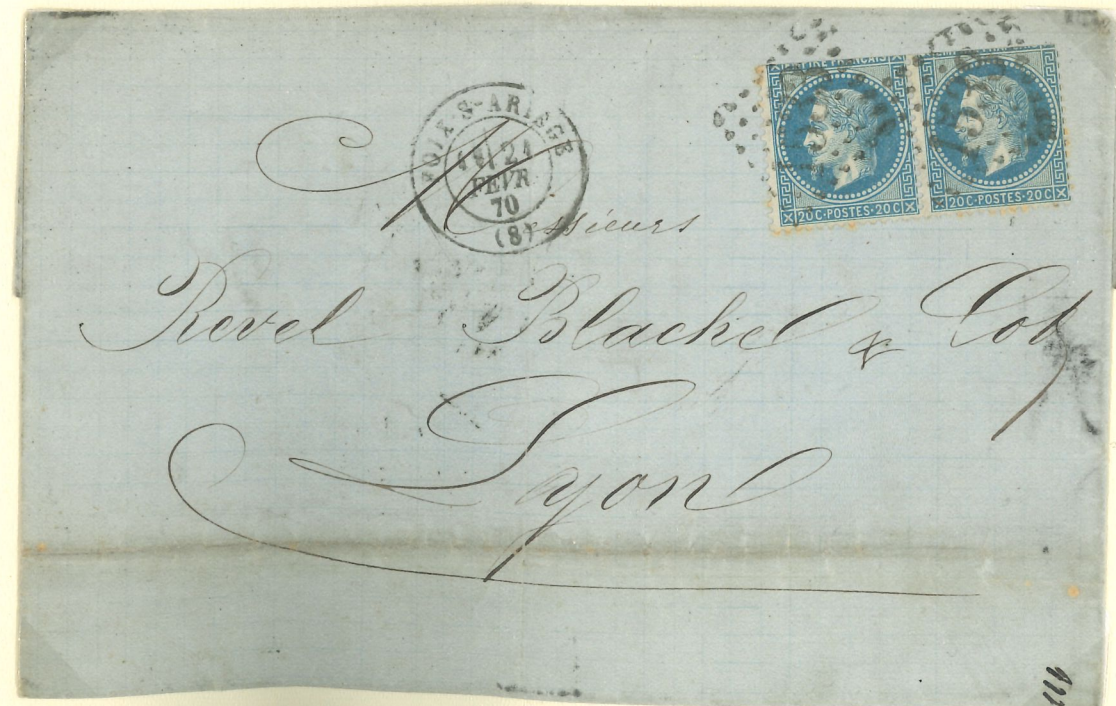 FOIX-S-ARIEGE
21
FEVR
70
(8)
EMPIRE FRANÇAIS
20C·POSTES·20C
20C·POSTES·20C
Messieurs
Revel Blache & Co
Lyon